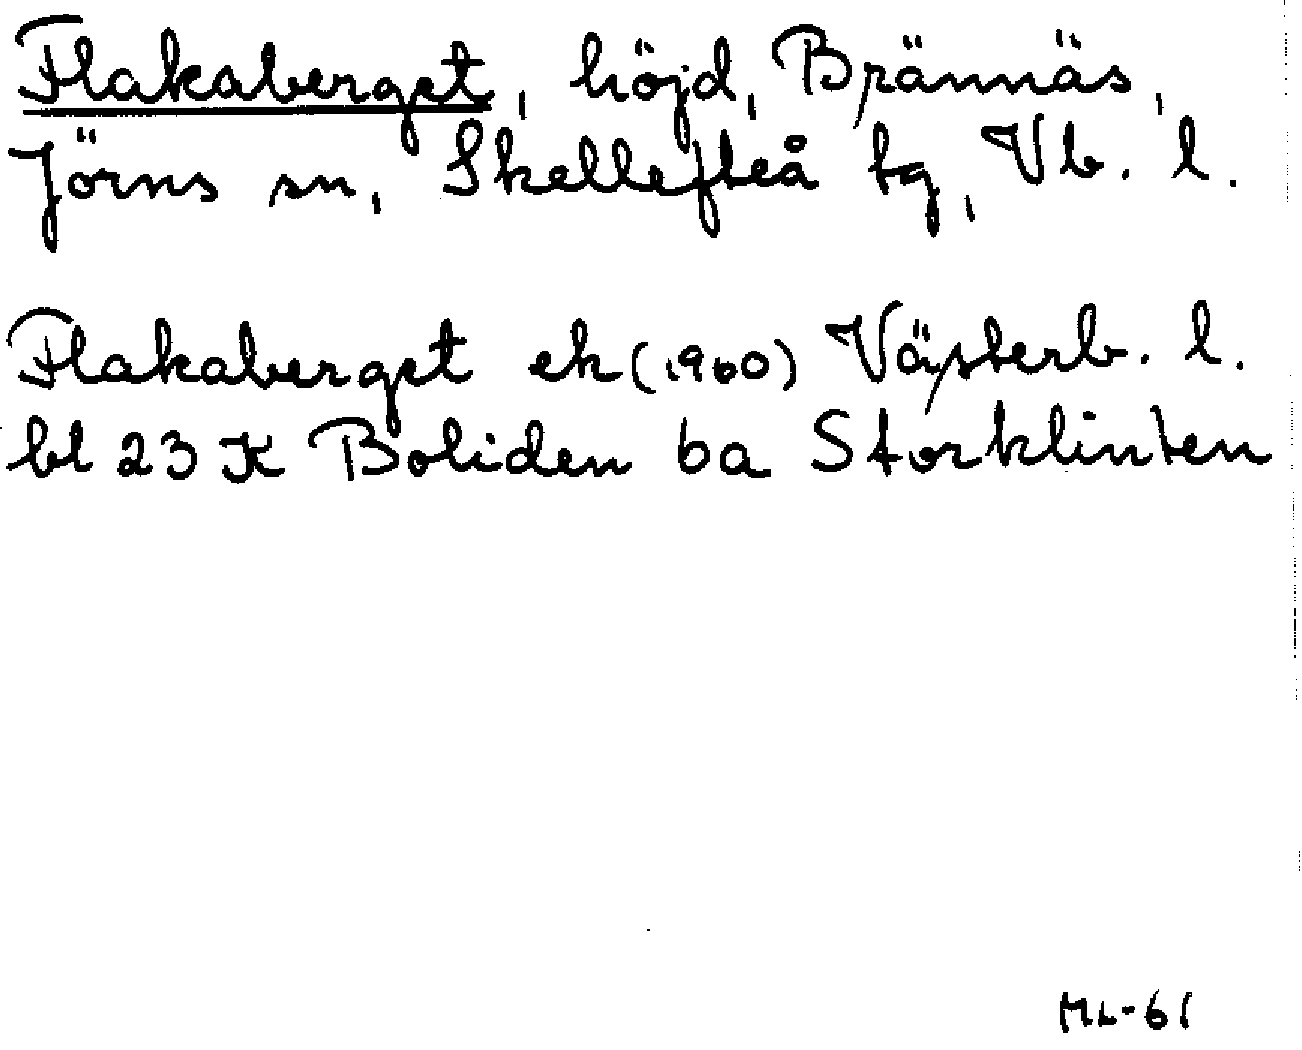 Flakaberget, höjd, Brännäs,
Jörns sn, Skellefteå tg, Vb. l.
Flakaberget ek (1960) Västerb. l.
bl 23 K Boliden ba Storklinten
ML-61